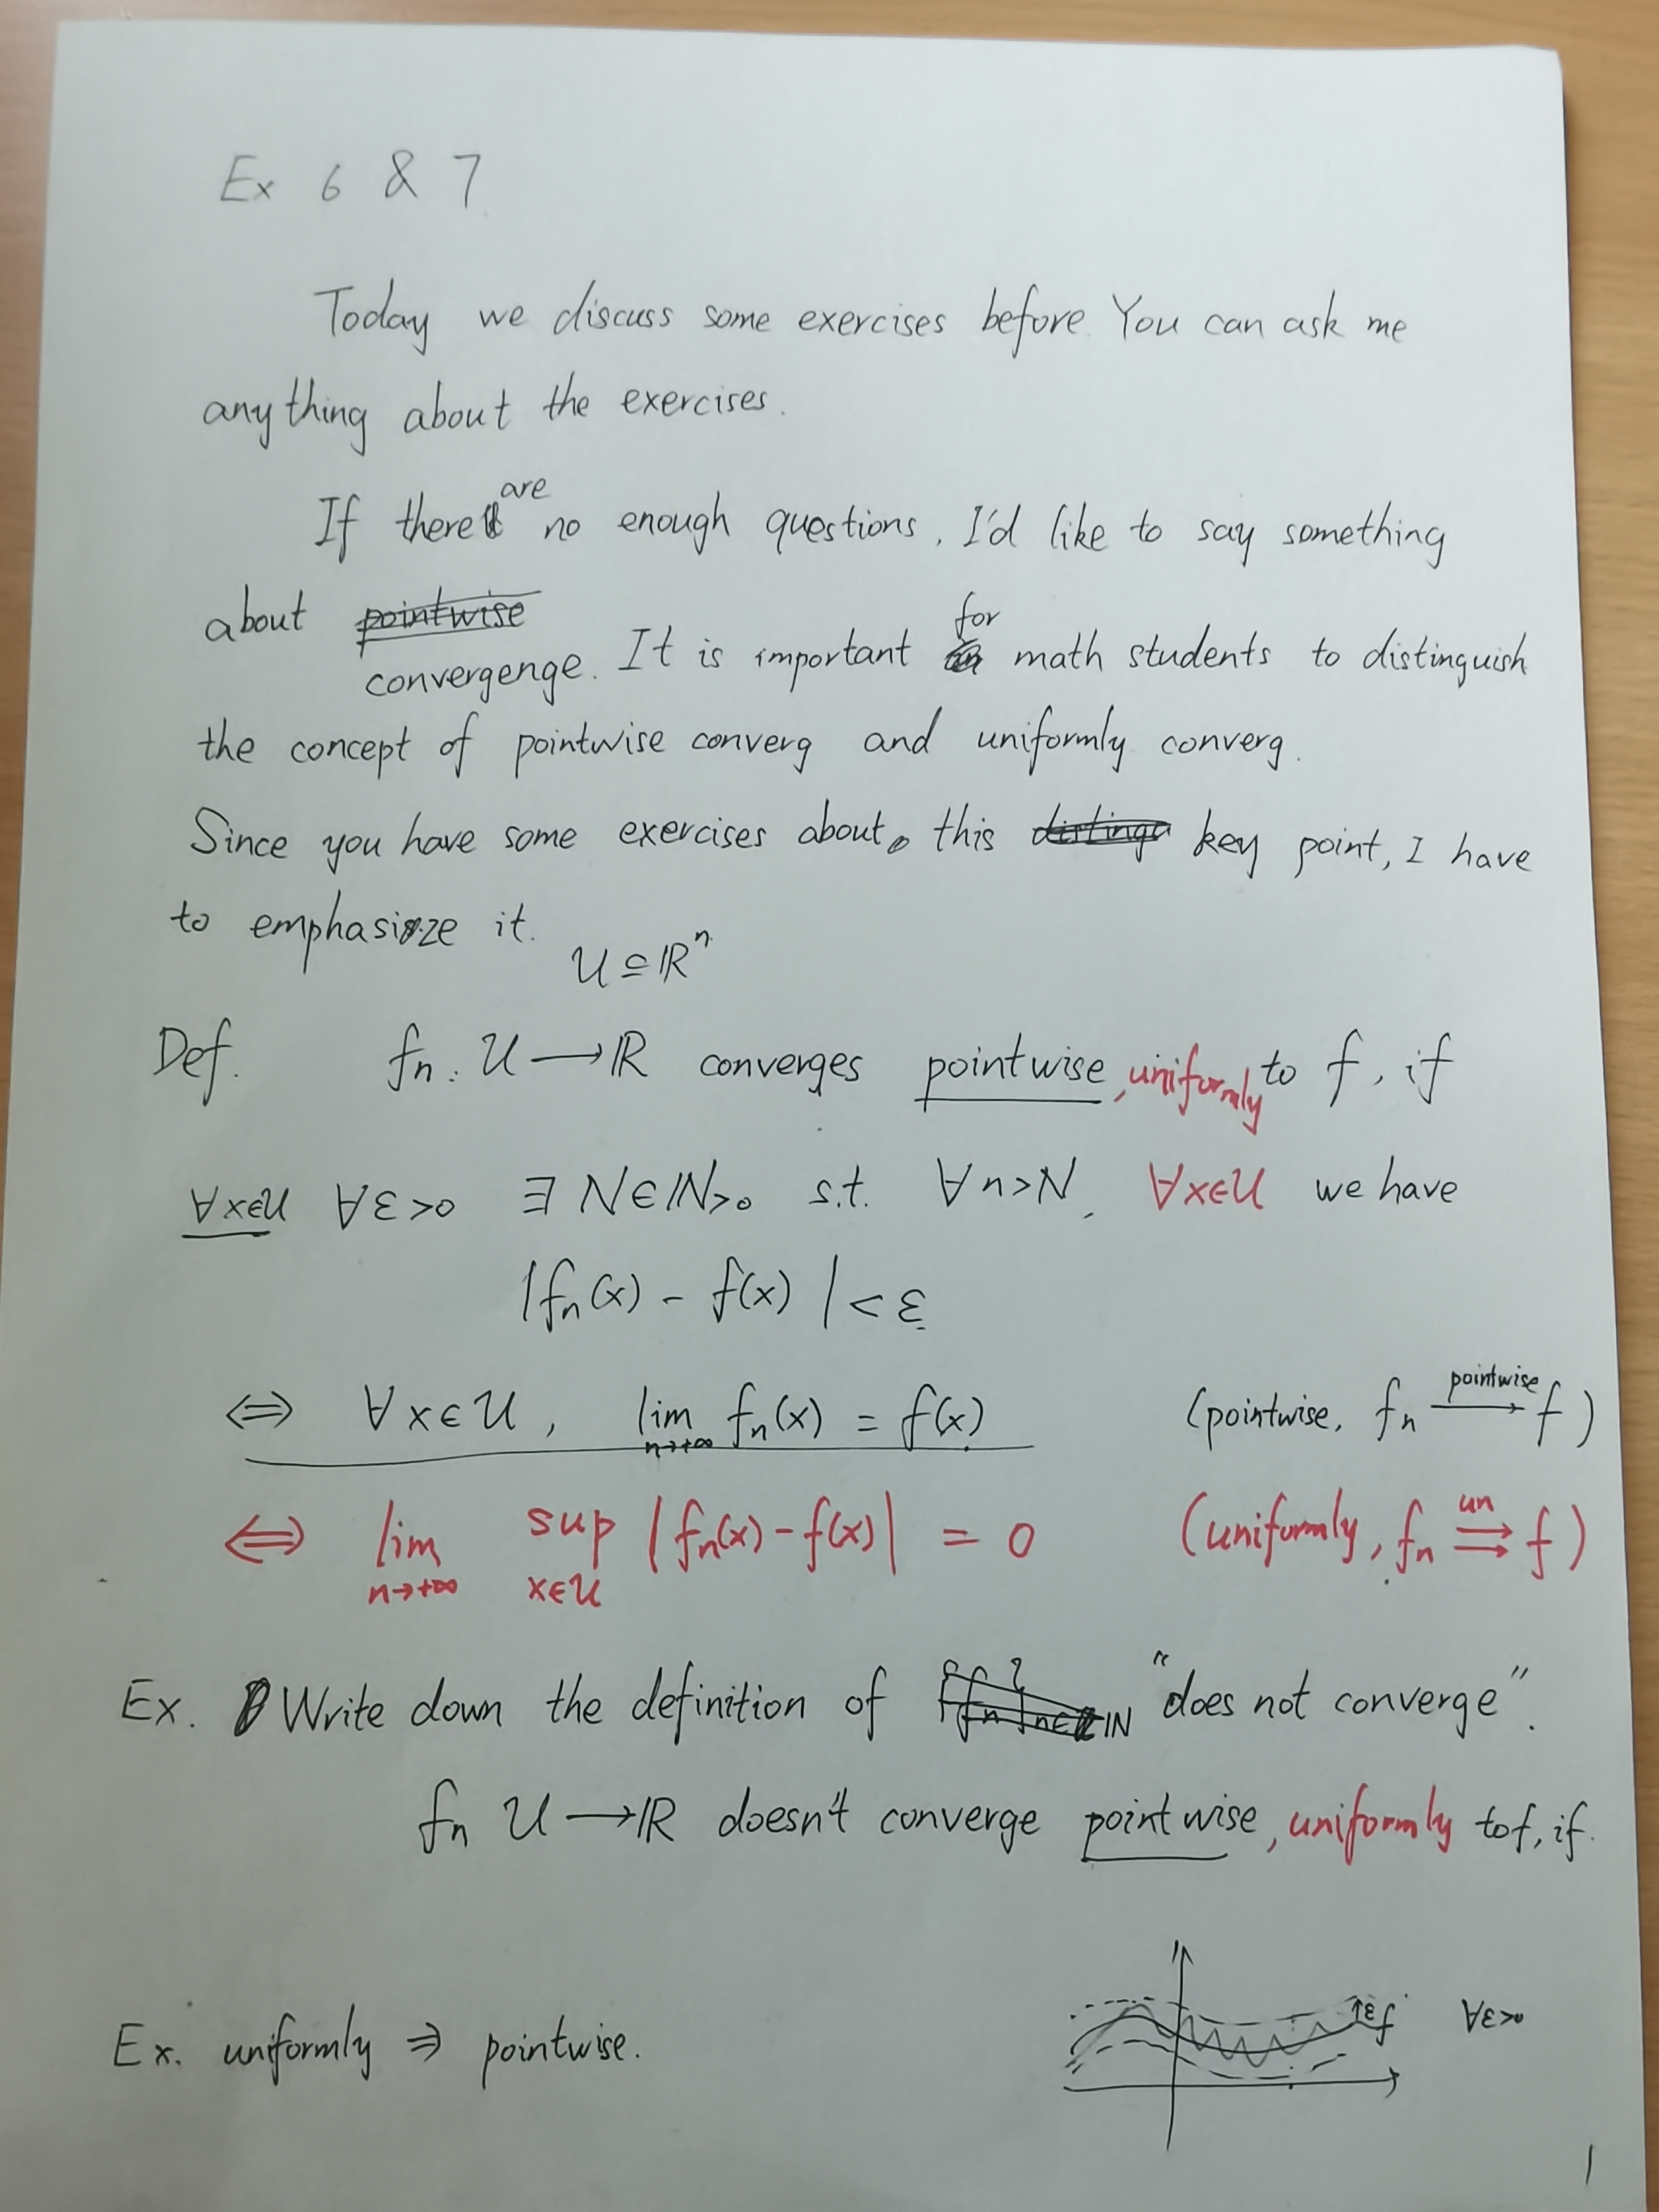 Ex 6 & 7
Today we discuss some exercises before. You can ask me
anything about the exercises.
If there are no enough questions, I'd like to say something
about pointwise
convergenge. It is important for math students to distinguish
the concept of pointwise converg and uniformly converg.
Since you have some exercises about this distinga key point, I have
to emphasize it.
U ⊆ ℝⁿ
Def. fₙ: U → ℝ converges pointwise, uniformly to f, if
∀x∈U ∀ε>0 ∃ N∈ℕ>₀ s.t. ∀n>N, ∀x∈U we have
|fₙ(x) - f(x)| < ε
⇔ ∀x∈U, lim n→+∞ fₙ(x) = f(x) (pointwise, fₙ pointwise → f)
⇔ lim n→+∞ sup x∈U |fₙ(x) - f(x)| = 0 (uniformly, fₙ un ⇉ f)
Ex. Write down the definition of {fₙ}n∈ℕ "does not converge".
fₙ U → ℝ doesn't converge pointwise, uniformly to f, if
Ex. uniformly ⇒ pointwise.
ε f ∀ε>0
1